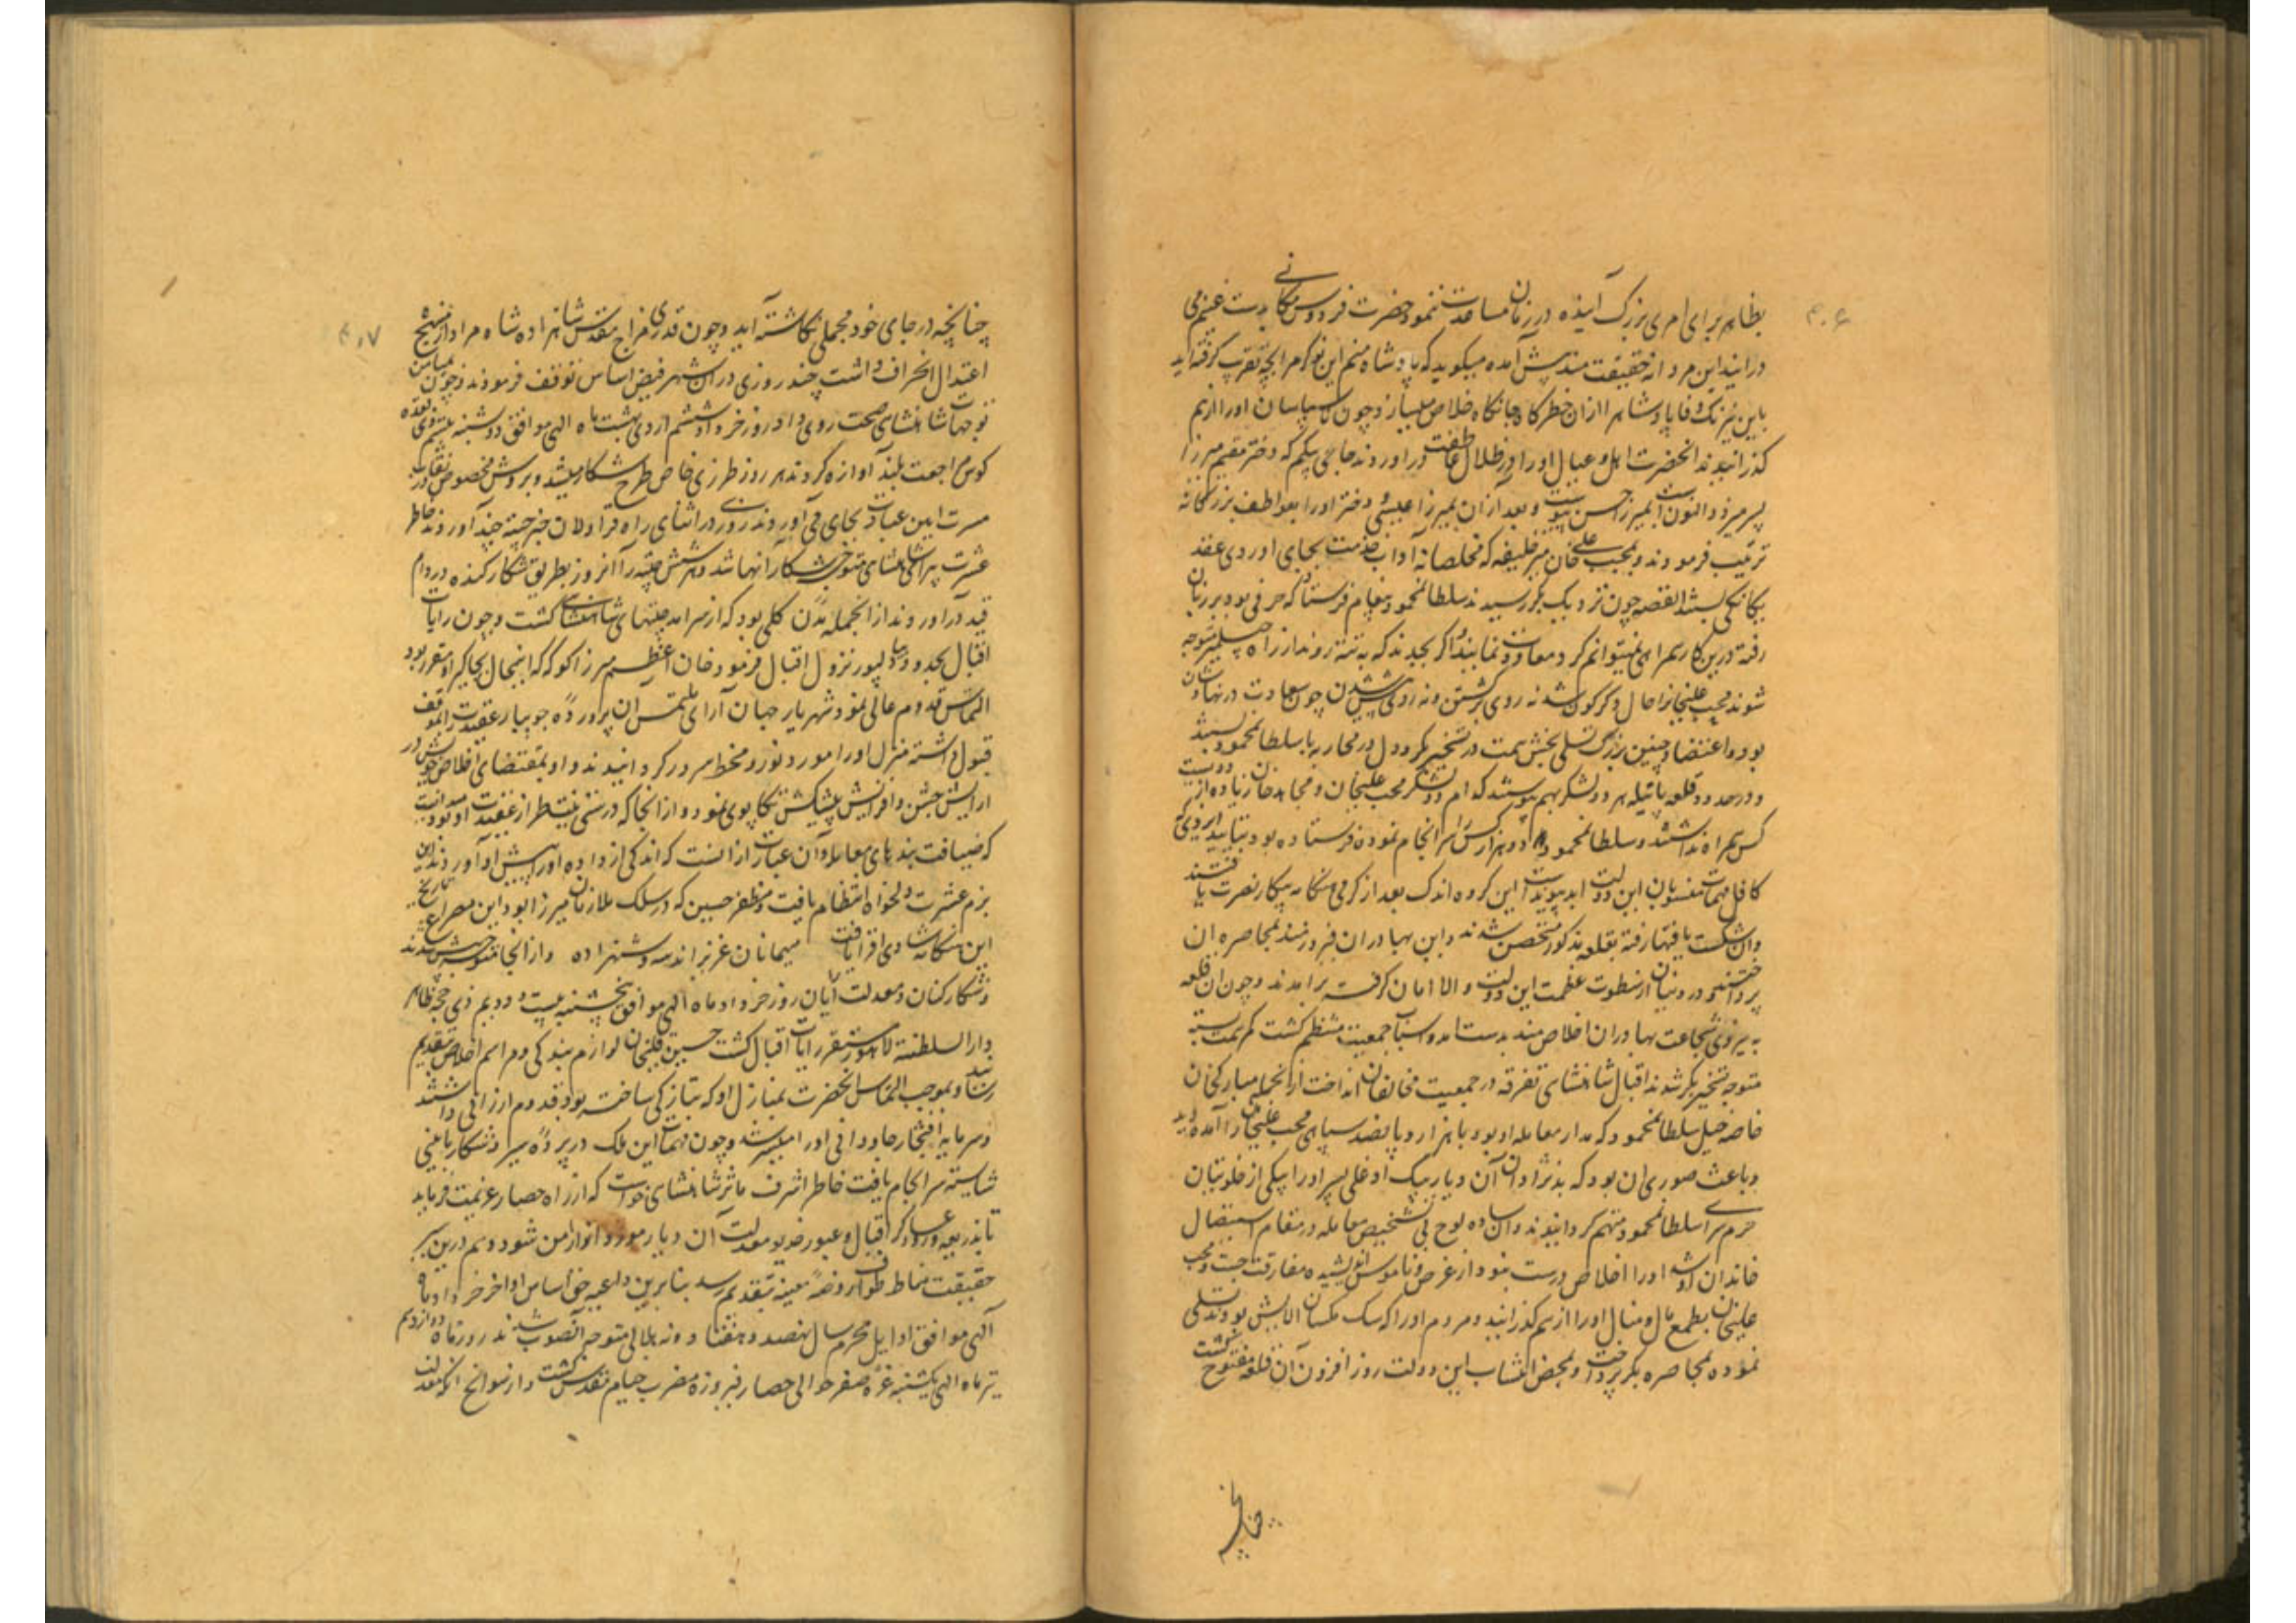 ۴۰۶
بظاهر برای امری بزرگ آینده در زمان مساعدت ننمود حضرت فردوس مکانی بدست غنیم می
در آیند این مردانه حقیقت مند پیش آمده میگوید که پادشاه منم این نوکر مرا بچه تقریب گرفته‌اید
باین نیرنگ وفا پادشاه را ازان خطرگاه جانکاه خلاص میسازد و چون ناسپاسان او را از هم
گذرانیدند انحضرت اهل و عیال او را در ظلال عاطفت در اوردند حاجی بیگم که دختر مقیم میرزا
پسر میر ذوالنون است بمیرزا حسن پیوست و بعد ازان بمیرزا عیسی و دختر او را بعواطف بزرگانه
تربیت فرمودند و بمحب علی خان میر خلیفه که مخلصانه آداب خدمت بجای اوردی عقد
یگانگی بستند القصه چون نزدیک بکر رسیدند سلطانمحمود پیغام فرستاد که حرفی بود بر زبان
رفته درین کار همراهی نمیتوانم کرد و معاونت نمایند و اگر بجدند که به تته روند از راه جیسلمیر متوجه
شوند محب علیخانرا حال دگرگون شد نه روی برگشتن و نه رای پیش شدن چون سعادت در نهاد شان
بود و اعتضاد چنین بزرگ تسلی بخش همت در تسخیر بکر و دل در محاربه با سلطانمحمود بستند
و در حدود قلعه ماتیله هر دو لشکر بهم پیوستند که ام دو لشکر محب علیخان و مجاهد خان زیاده از دویست
کس همراه نداشتند و سلطانمحمود دو هزار کس سرانجام نموده فرستاده بود بتایید ایزدی که
کافل مهمات منسوبان این دولت ابد پیوند است این گروه اندک بعد از گرمی هنگامه پیکار نصرت یافتند
و ان شکست یافتها رفته بقلعه مذکور متحصن شدند و این بهادران فیروزمند بمحاصره ان
پرداختند و درونیان از سطوت عظمت این دولت والا امان گرفته برامدند و چون ان قلعه
به نیروی شجاعت بهادران اخلاص مند بدست امد و اسباب جمعیت منتظم گشت کمر همت بسته
متوجه تسخیر بکر شدند اقبال شاهنشاهی تفرقه در جمعیت مخالفان انداخت ازانجمله مبارک خان
خاصه خیل سلطانمحمود که مدار معامله او بود با هزار و پانصد سپاهی محب علیخان را آمده دید
و باعث صوری ان بود که بدنژادان آن دیار بیگ اوغلی پسر او را بیکی از خلوتیان
حرم سرای سلطانمحمود متهم گردانیدند و ان ساده لوح بی تشخیص معامله در مقام استیصال
خاندان او شد او را اخلاص درست نبود از غرض و ناموس اندیشیده مفارقت جست و محب
علیخان بطمع مال و منال او را از هم گذرانید و مردم او را که سگ مگسان الایش بودند تسلی
نموده بمحاصره بکر پرداخت و بمحض انتساب این دولت روز افزون آن قلعه مفتوح گشت
چنانچه
۴۰۷
چنانچه در جای خود مجملی نگاشته آید و چون قدری مزاج مقدس شاهزاده شاه مراد از منهج
اعتدال انحراف داشت چند روزی دران شهر فیض اساس توقف فرمودند و چون بمیامن
توجهات شاهنشاهی صحت روی داد روز خرداد ششم اردی بهشت ماه الهی موافق دوشنبه بیستم ذی قعده
کوس مراجعت بلند آوازه کردند هر روز طرزی خاص طرح شکار میشد و بروش مخصوص نقاب در
مسرت آیین عبادت بجای می آوردند روزی در اثنای راه قراولان خبر چیته چند آوردند خاطر
عشرت پیرای شاهنشاهی متوجه شکار آنها شد و هر شش چیته را آنروز بطریق شکار کننده در دام
قید در اوردند ازانجمله مدن کلی بود که از سرامد چیتهای شاهنشاهی گشت و چون رایات
اقبال بحدود دیبالپور نزول اقبال فرمود خان اعظم میرزا کوکه که اینحال بجاگیر او مقرر بود
التماس قدوم عالی نمود شهریار جهان آرای ملتمس آن پرورده جویبار عقیدت را بموقف
قبول داشته منزل او را مورد نور و مخط سرور گردانیدند و او بمقتضای اخلاص خویش در
ارایش جشن و افزایش پیشکش تکاپوی نمود و ازانجا که در سنی نیتطر از عقیدت او بود میدانست
که ضیافت بندهای معامله دان عبارت ازانست که اندکی از داده او را پیش او آورند این
بزم عشرت دلخواه انتظام یافت و مظفر حسین که در سلک ملازمان میرزا بود این مصراع تاریخ
این هنگامه شادی افزا یافت میهمانان عزیزاند شه و شهزاده و ازانجا متوجه پیش شدند
و شکارکنان و معدلت آیان روز خرداد ماه الهی موافق پنجشنبه بیست و دویم ذی حجه ظاهر
دارالسلطنة لاهور مستقر رایات اقبال گشت حسین قلیخان لوازم بندگی و مراسم اخلاص بتقدیم
رسانید و بموجب التماس انحضرت بمنازل او که بتازگی ساخته بود قدوم ارزانی داشتند
و سرمایه افتخار جاودانی او را میسر شد و چون مهمات این ملک در پرده سیر و شکار بآیینی
شایسته سرانجام یافت خاطر اشرف ماثر شاهنشاهی خواست که از راه حصار عزیمت فرماید
تا بذریعه ورود عساکر اقبال و عبور خدیو معدلت آن دیار مورد انوار امن شود و هم درین سیر
حقیقت مناط طواف روضه معینیه بتقدیم رسد بنابرین داعیه حق اساس اواخر خرداد ماه
آلهی موافق اوایل محرم سال نهصد و هفتاد و نه هلالی متوجه آنصوب شدند روز ماه دوازدهم
تیر ماه الهی یکشنبه غره صفر حوالی حصار فیروزه مضرب خیام مقدس گشت و از سوانح انکه معدلت